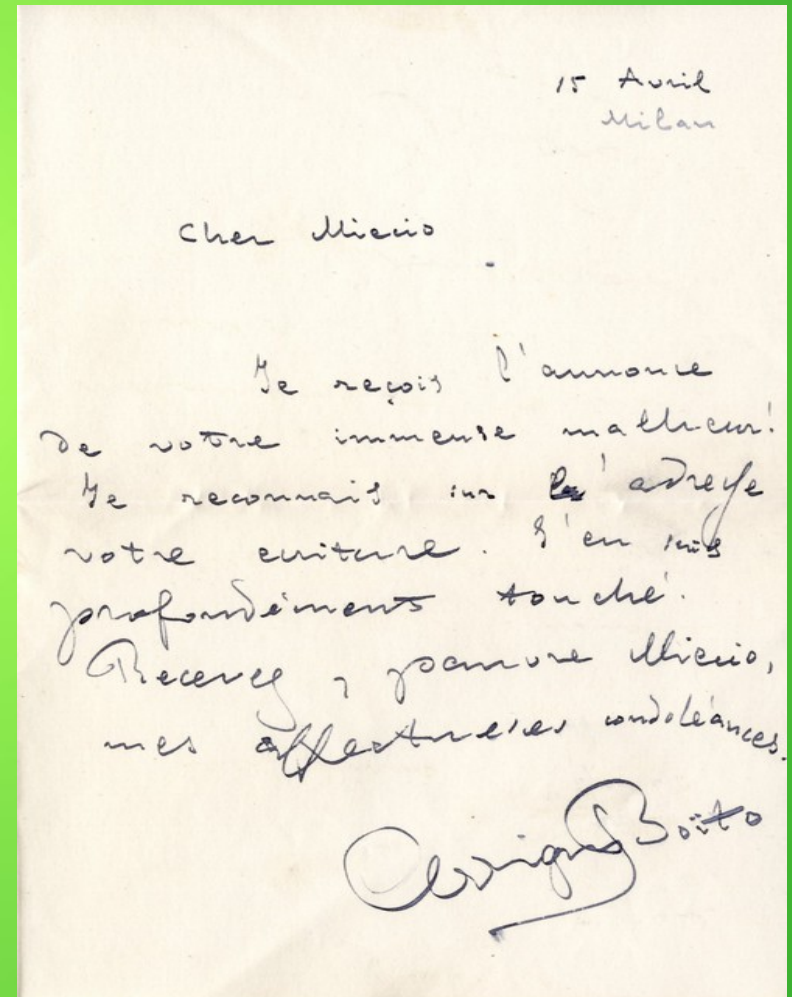 15 Avril
Milan
Cher Miccio
Je reçois l'annonce
de votre immense malheur!
Je reconnais sur l'adresse
votre ecriture. J'en suis
profondéments touché.
Recevez, pauvre Miccio,
mes affectueuses condoléances.
Arrigo Boïto